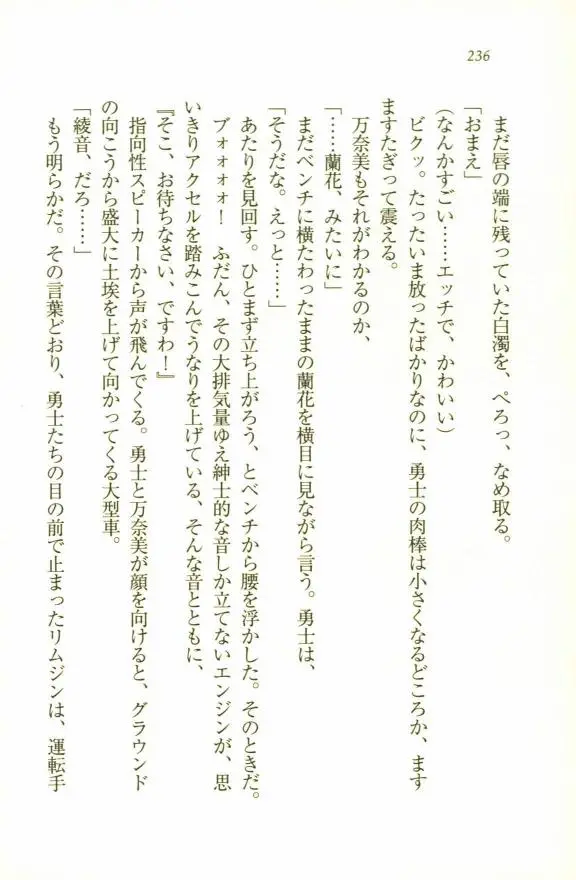 236
まだ唇の端に残っていた白濁を、ぺろっ、なめ取る。
「おまえ」
(なんかすごい……エッチで、かわいい)
ビクッ。たったいま放ったばかりなのに、勇士の肉棒は小さくなるどころか、ます
ますたぎって震える。
万奈美もそれがわかるのか、
「……蘭花、みたいに」
まだベンチに横たわったままの蘭花を横目に見ながら言う。勇士は、
「そうだな。えっと……」
あたりを見回す。ひとまず立ち上がろう、とベンチから腰を浮かした。そのときだ。
ブォォォォ! ふだん、その大排気量ゆえ紳士的な音しか立てないエンジンが、思
いきりアクセルを踏みこんでうなりを上げている、そんな音とともに、
『そこ、お待ちなさい、ですわ!』
指向性スピーカーから声が飛んでくる。勇士と万奈美が顔を向けると、グラウンド
の向こうから盛大に土埃を上げて向かってくる大型車。
「綾音、だろ……」
もう明らかだ。その言葉どおり、勇士たちの目の前で止まったリムジンは、運転手